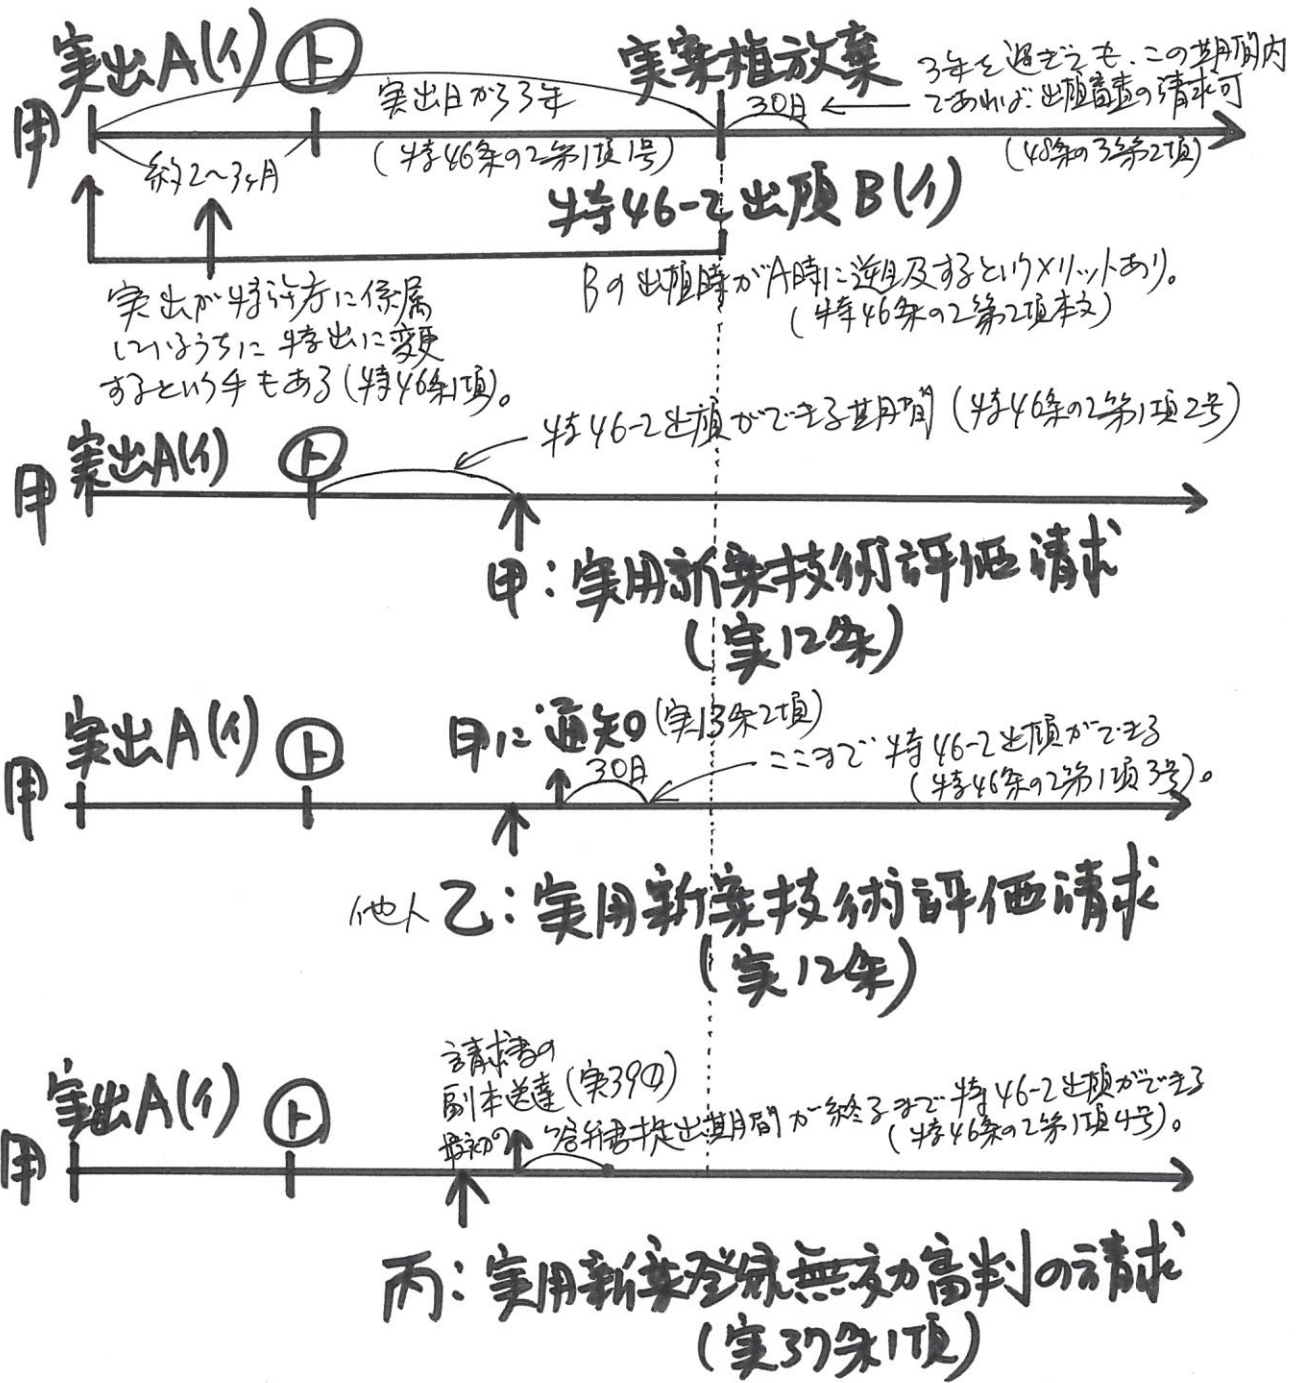 実出A(イ) ト
実案権放棄
3年を過ぎても、この期間内
であれば出願審査の請求可
(48条の3第2項)
甲
実出日から3年
(特46条の2第1項1号)
30日
約2〜3ヶ月
特46-2出願B(イ)
Bの出願時がA時に遡及するというメリットあり。
(特46条の2第2項本文)
実出が特許庁に係属
しているうちに特出に変更
するという手もある(特46条1項)。
特46-2出願ができる期間(特46条の2第1項2号)
甲 実出A(イ) ト
甲:実用新案技術評価請求
(実12条)
甲 実出A(イ) ト
甲に通知(実13条2項)
30日
ここまで特46-2出願ができる
(特46条の2第1項3号)。
他人 乙:実用新案技術評価請求
(実12条)
甲 実出A(イ) ト
請求書の
副本送達(実39①)
最初の答弁書提出期間が終るまで特46-2出願ができる
(特46条の2第1項4号)。
丙:実用新案登録無効審判の請求
(実37条1項)